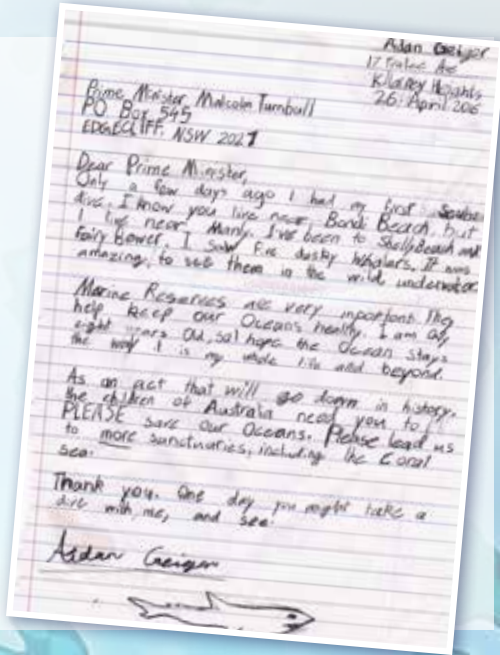 Aidan Geiger
17 Ave
Killarney Heights
26 April 2016
Prime Minister Malcolm Turnbull
PO Box 545
EDGECLIFF, NSW 2027
Dear Prime Minister,
Only a few days ago I had my first scuba
dive. I know you live near Bondi Beach, but
I live near Manly. I've been to Shelly Beach and
Fairy Bower. I saw five dusky whalers. It was
amazing, to see them in the wild, underwater.
Marine Reserves are very important. They
help keep our Oceans healthy. I am only
eight years old, so I hope the Ocean stays
the way it is my whole life and beyond.
As an act that will go down in history,
the children of Australia need you to
PLEASE save our Oceans. Please lead us
to more sanctuaries, including the Coral
Sea.
Thank you. One day you might take a
dive with me, and see.
Aidan Geiger